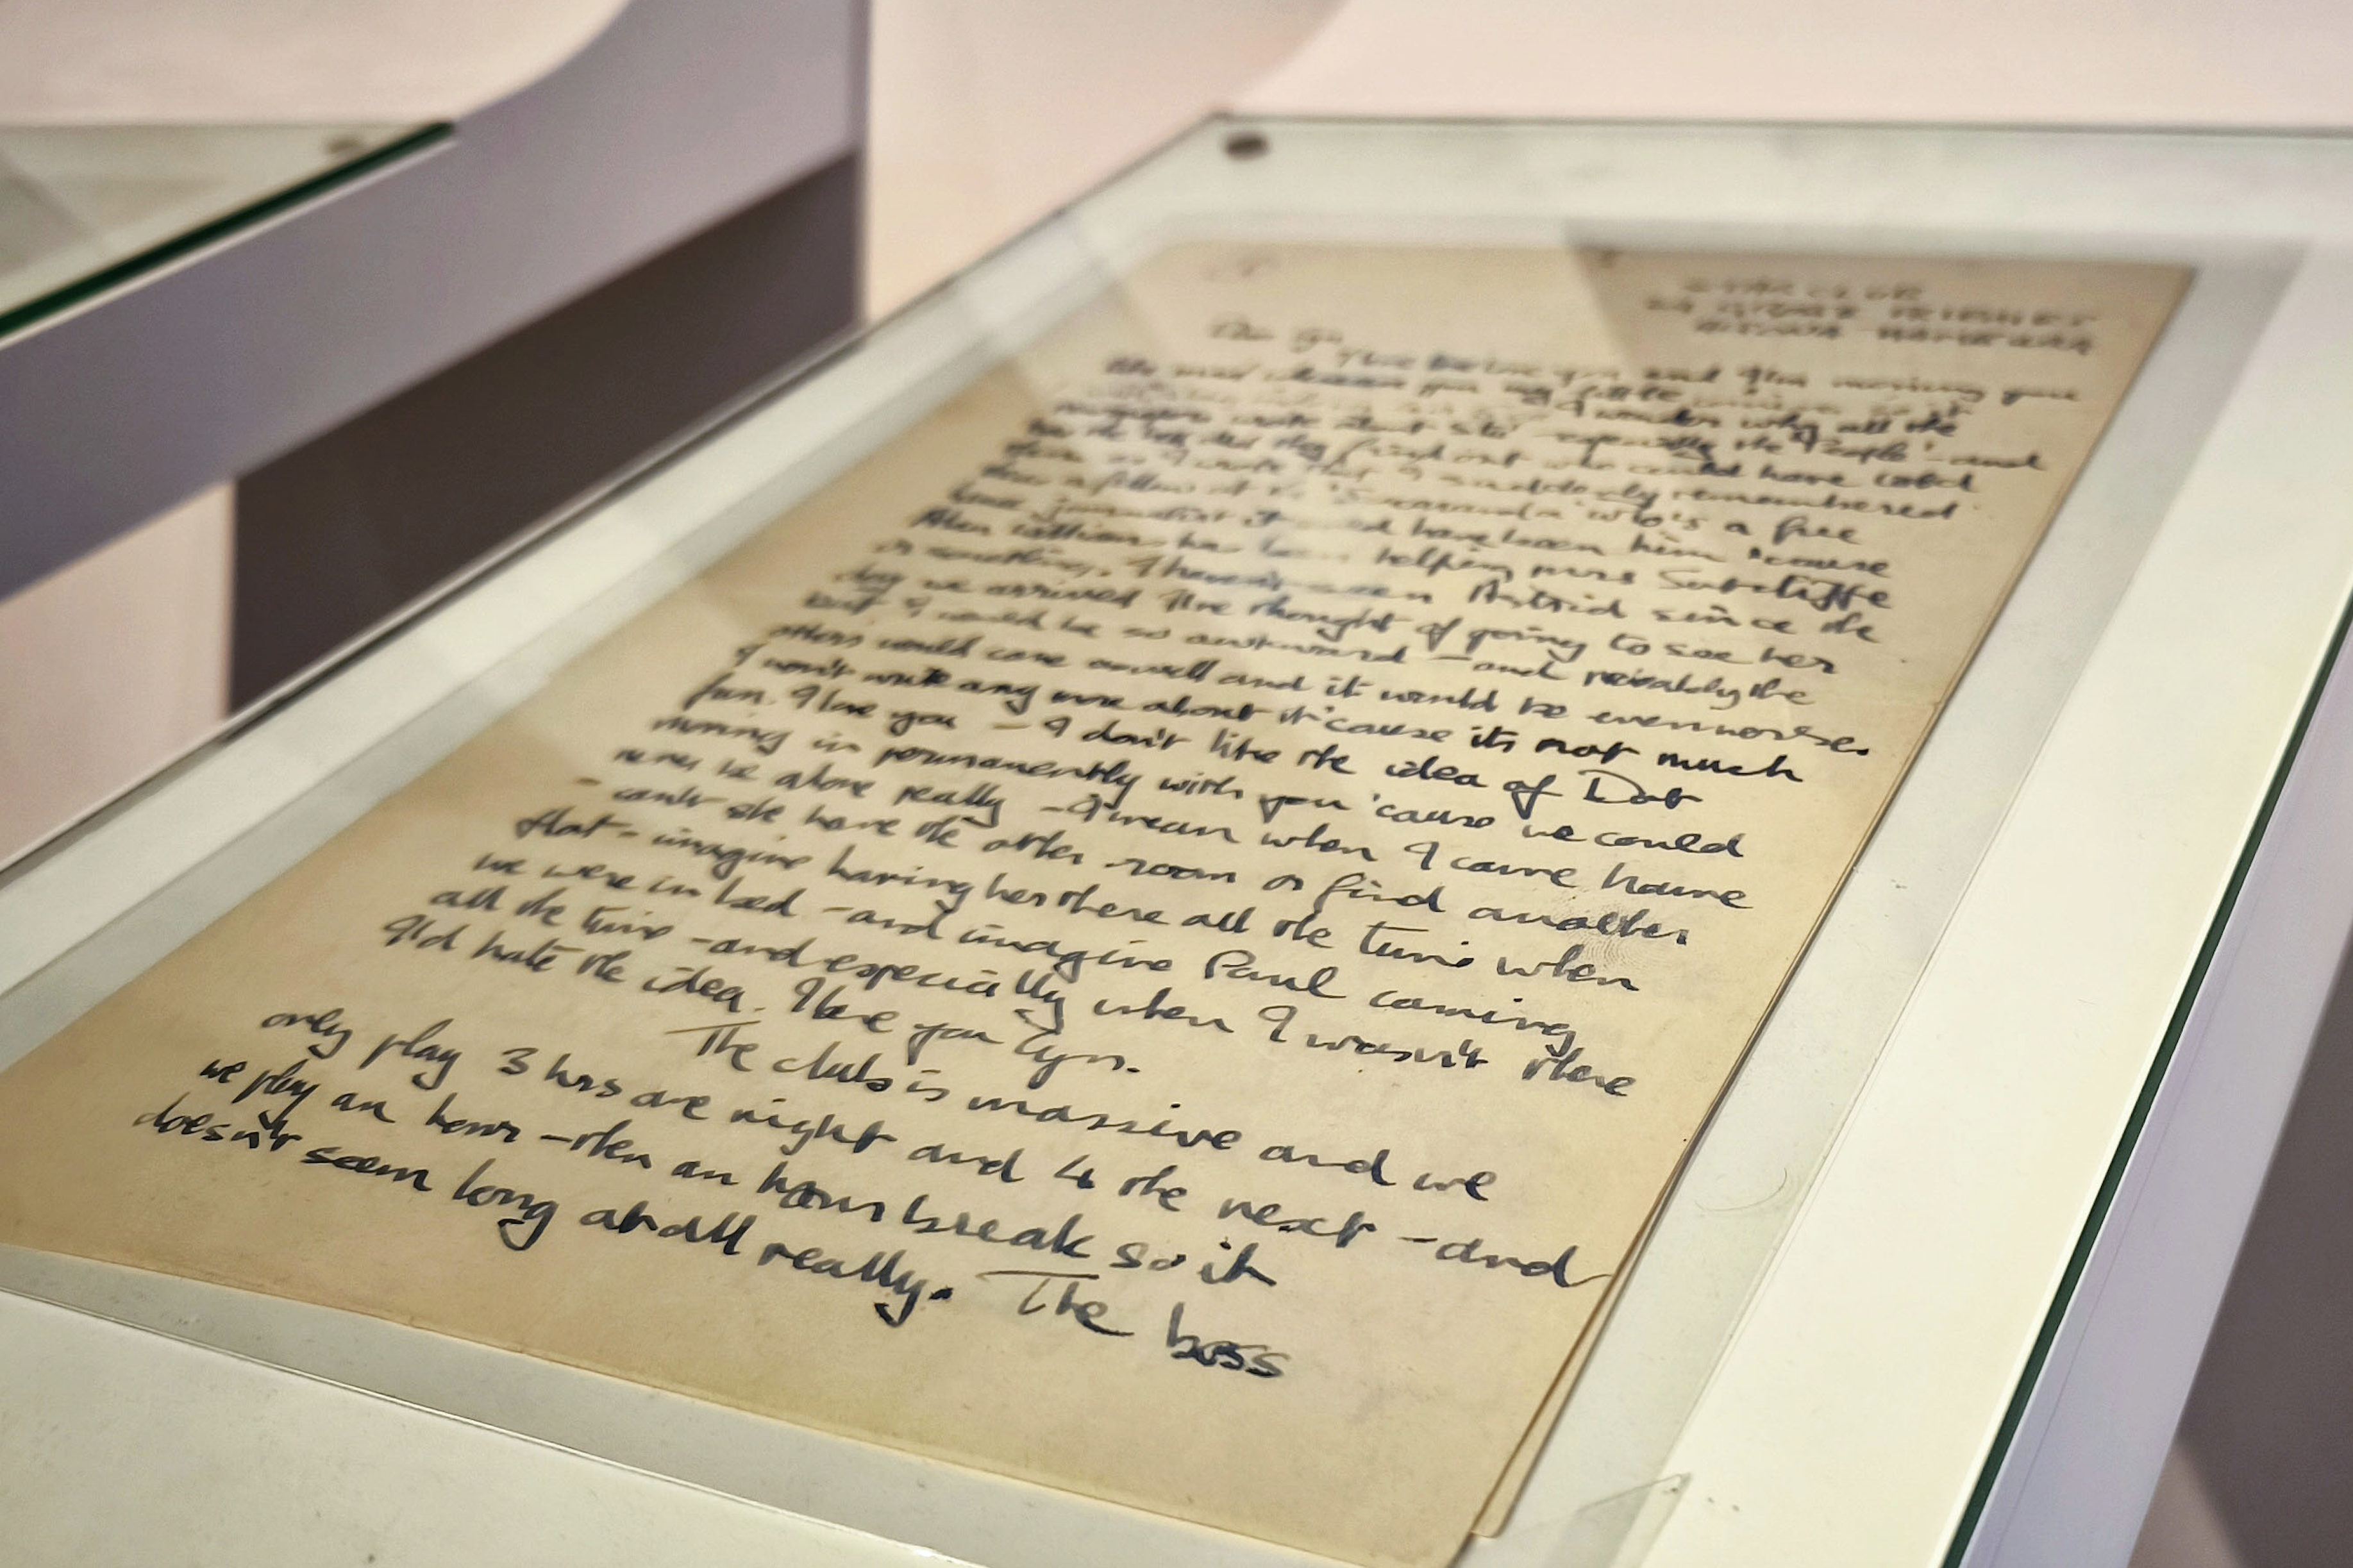 STAR CLUB
Dear Cyn
I love you and I'm missing you
I wonder why all the
wrote about Stu especially the 'People' - and
how the hell did they find out who could have told
them so I wrote that I suddenly remembered
a fellow at the 'Jacaranda' who's a free
journalist it have been him 'cause
Allan Williams has been helping mrs Sutcliffe
or something. I haven't seen Astrid since the
day we arrived I've thought of going to see her
but I would be so awkward - and probably the
others would come aswell and it would be even worse.
I won't write any more about it 'cause its not much
fun. I love you - I don't like the idea of Dot
moving in permanently with you 'cause we could
never be alone really - I mean when I come home
- can't she have the other room or find another
flat - imagine having her there all the time when
we were in bed - and imagine Paul coming
all the time - and especially when I wasn't there
I'ld hate the idea. I love you Cyn.
The club is massive and we
only play 3 hrs one night and 4 the next - and
we play an hour - then an hour break so it
doesn't seem long at all really. The boss